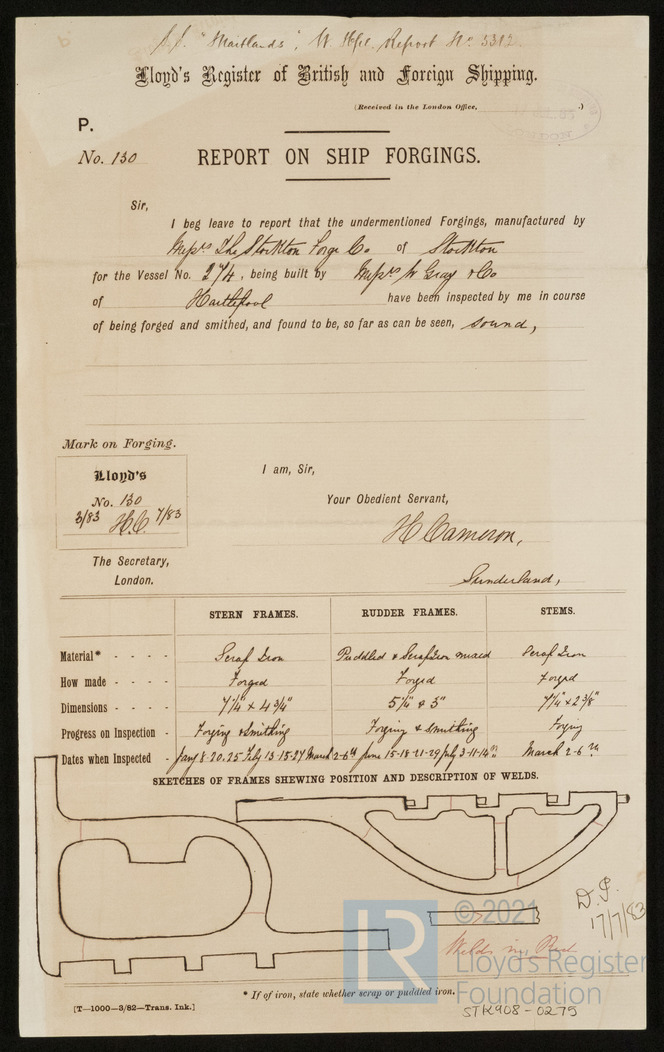 S.S. "Maitlands", W. Hpl. Report No 5312
Lloyd's Register of British and Foreign Shipping.
(Received in the London Office, .)
P.
No. 130 REPORT ON SHIP FORGINGS.
Sir,
I beg leave to report that the undermentioned Forgings, manufactured by
Messrs The Stockton Forge Co of Stockton
for the Vessel No. 274, being built by Messrs W Gray & Co
of Hartlepool have been inspected by me in course
of being forged and smithed, and found to be, so far as can be seen, sound,
Mark on Forging.
Lloyd's
No. 130
3/83 H.C. 7/83
I am, Sir,
Your Obedient Servant,
H Cameron,
Sunderland,
The Secretary,
London.
STERN FRAMES. RUDDER FRAMES. STEMS.
Material* - - - - Scrap Iron Puddled & Scrap Iron mixed Scrap Iron
How made - - - - Forged Forged Forged
Dimensions - - - - 7¼" x 4¾" 5¼" & 3" 7¼" x 2⅜"
Progress on Inspection - Forging & Smithing Forging & Smithing Forging
Dates when Inspected - Jany 8.20.25 Feby 13.15.27 March 2-6th June 15-18-21-29 July 3-11-14th March 2-6th
SKETCHES OF FRAMES SHEWING POSITION AND DESCRIPTION OF WELDS.
D.P.
17/7/83
Welds in Red
© 2021
LR
Lloyd's Register
Foundation
* If of iron, state whether scrap or puddled iron.
[T—1000—3/82—Trans. Ink.]
STK908-0275